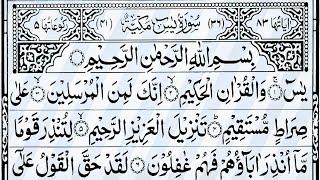 اٰیَاتُهَا ۸۳ (۳۶) سُوْرَةُ یٰسٓ مَکِّیَّةٌ (۴۱) رُکُوْعَاتُهَا ۵
بِسْمِ اللّٰهِ الرَّحْمٰنِ الرَّحِیْمِ
یٰسٓ ۚ وَالْقُرْاٰنِ الْحَکِیْمِ ۙ اِنَّکَ لَمِنَ الْمُرْسَلِیْنَ ۙ عَلٰی
صِرَاطٍ مُّسْتَقِیْمٍ ؕ تَنْزِیْلَ الْعَزِیْزِ الرَّحِیْمِ ۙ لِتُنْذِرَ قَوْمًا
مَّاۤ اُنْذِرَ اٰبَآؤُهُمْ فَهُمْ غٰفِلُوْنَ لَقَدْ حَقَّ الْقَوْلُ عَلٰۤی